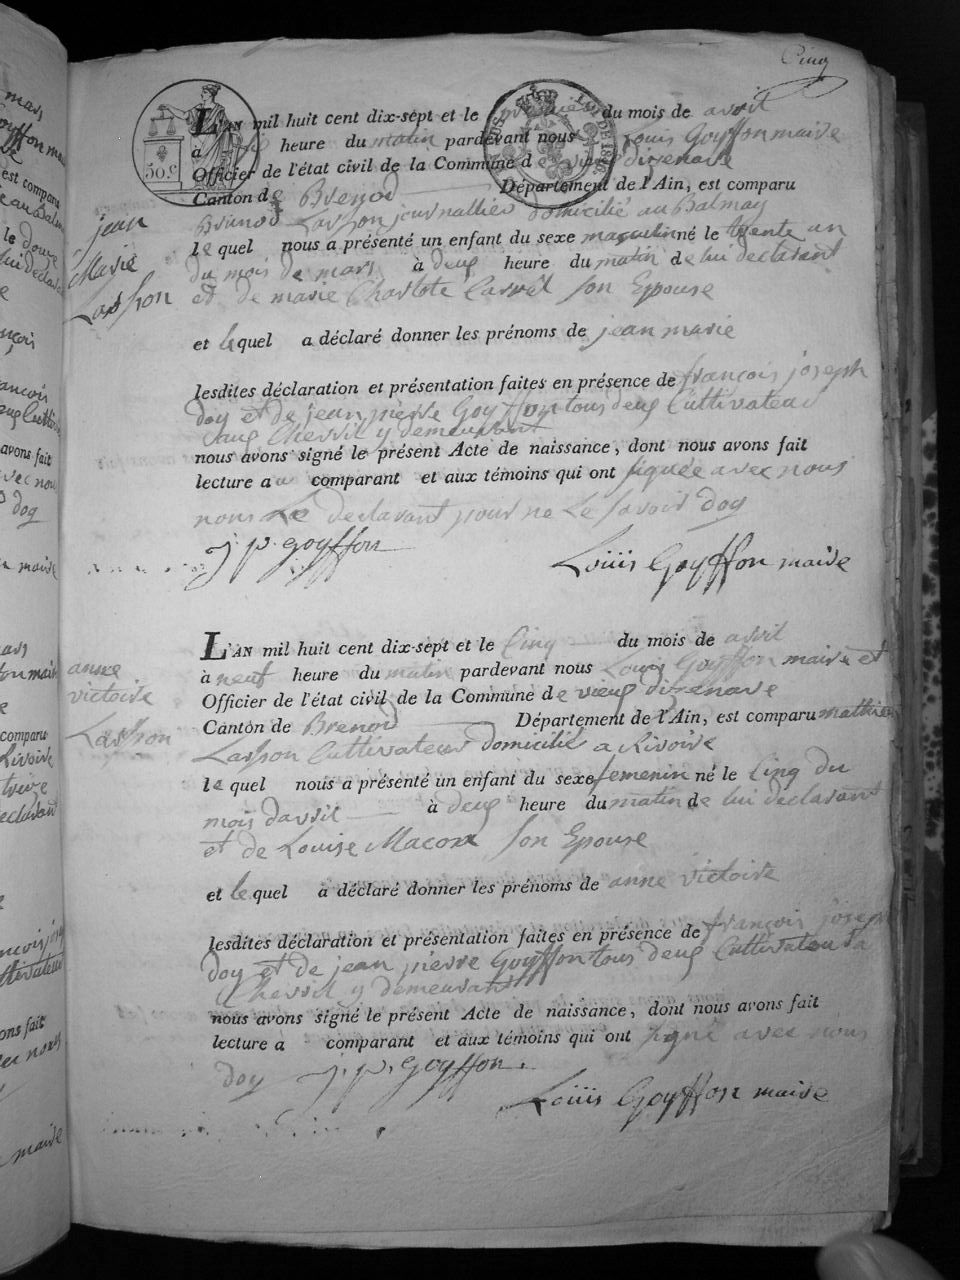 Cinq
50.c
LOI DE 1816.
L'AN mil huit cent dix-sept et le premier du mois de avril
à heure du matin pardevant nous Louis Goyffon maire
Officier de l'état civil de la Commune de vieug dizenave
Canton de Brenod Département de l'Ain, est comparu
Brunod Lasson journallier domicilié au Balmay
le quel nous a présenté un enfant du sexe masculin né le trente un
du mois de mars à deug heure du matin de lui declarant
et de marie Charlote son Epouse
jean
Marie
Lasson
et le quel a déclaré donner les prénoms de jean marie
lesdites déclaration et présentation faites en présence de françois joseph
doy et de jean pierre Goyffon tous deug Cultivateur
Chevril y demeurant
nous avons signé le présent Acte de naissance, dont nous avons fait
lecture au comparant et aux témoins qui ont signée avec nous
non Le declarant pour ne Le savoir doy
j. p. goyffon Loüis Goyffon maire
L'AN mil huit cent dix-sept et le Cinq du mois de avril
à neuf heure du matin pardevant nous Louis Goyffon maire et
Officier de l'état civil de la Commune de vieug dizenave
Canton de Brenod Département de l'Ain, est comparu mathieu
Lasson Cultivateur domicilié a Rivoire
le quel nous a présenté un enfant du sexe femenin né le Cinq du
mois davril à deug heure du matin de lui declarant
et de Louise Macon son Epouse
anne
victoire
Lasson
et le quel a déclaré donner les prénoms de anne victoire
lesdites déclaration et présentation faites en présence de françois joseph
doy et de jean pierre Goyffon tous deug Cultivateur a
Chevril y demeurant
nous avons signé le présent Acte de naissance, dont nous avons fait
lecture a comparant et aux témoins qui ont signé avec nous
doy j. p. goyffon.
Loüis Goyffon maire